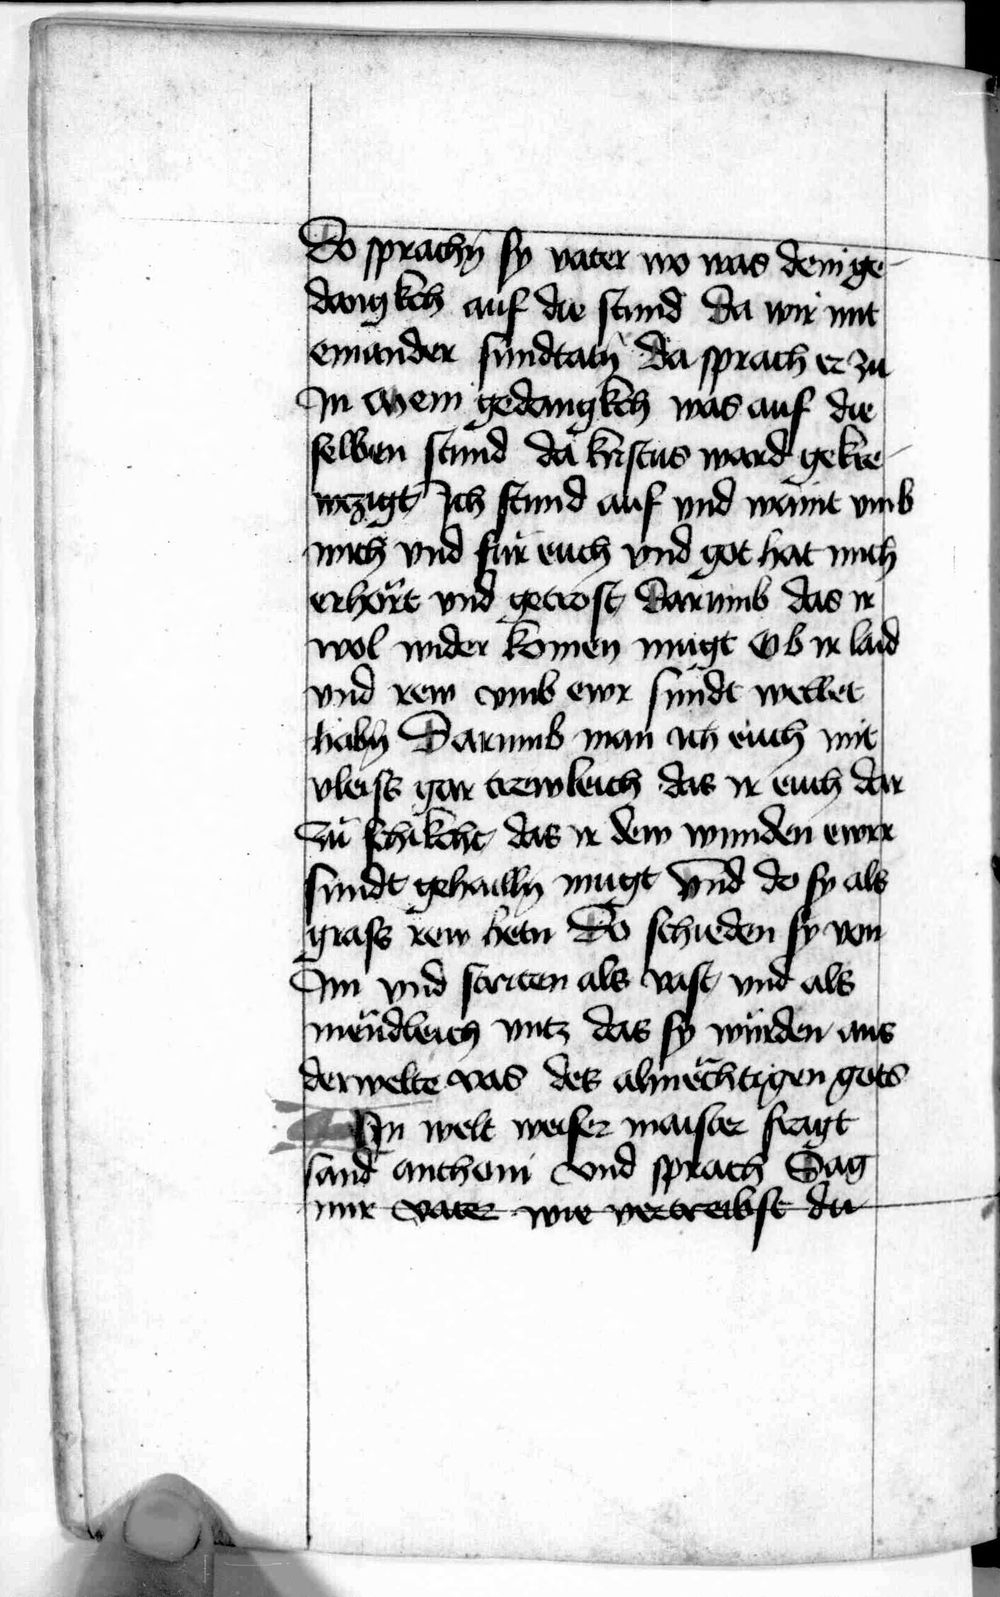 Do sprachn̄ sy vater wo was dein ge-
dangkch auf die stund da wir mit
einander sündtatn̄ Da sprach er zu
In Mein gedangkch was auf die
selben stund da kristus ward gekre-
wczigt Ich stund auf vnd waint vmb
mich vnd für euch vnd got hat mich
erhört vnd getrost Darumb das ir
wol wider komen mügt Ob ir laid
vnd rew vmb ewr sündt wellet
habn̄ Darumb man ich euch mit
vleiss gar trewleich das ir euch dar
zu schikcht das ir dew wunden ewrr
sundt gehailn̄ mugt Vnd do sy als
grass rew hetn Do schieden sy von
Im vnd striten als vast vnd als
mēndleich vntz das sy wurden aus
derwelte vas des almēchtigen gots
Ain welt weiser maister fragt
sand anthoni vnd sprach Sag
mir vater wie vertreibst du